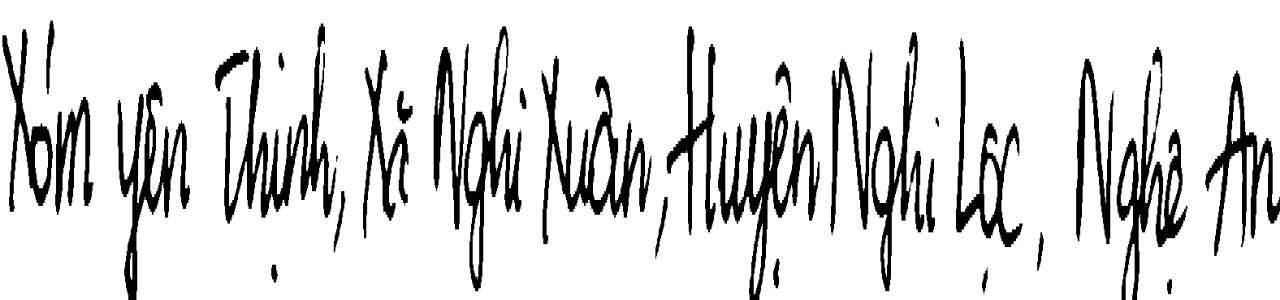 Xóm yên Thịnh, Xã Nghi Xuân, Huyện Nghi Lộc, Nghệ An